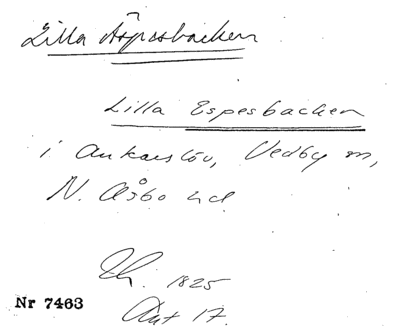 Lilla Äspesbacken
Lilla Espesbacken
i Ankarslöv, Vedby sn,
N. Åsbo hd
Lh. 1825
Akt 17.
Nr 7463